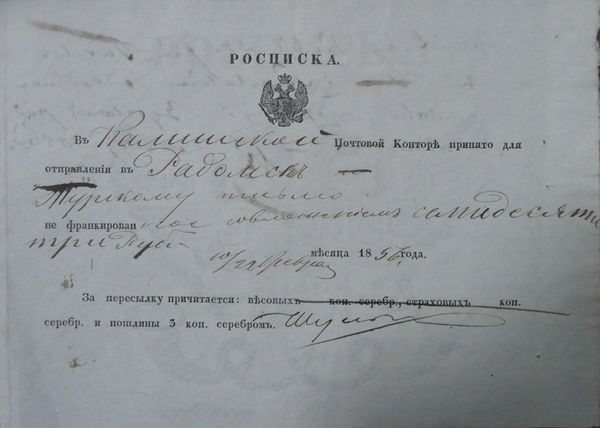 РОСПИСКА.
Въ Калишской Почтовой Конторѣ принято для
отправленія въ Радомскъ
письмо
не франкированное со вложеніемъ семидесяти
три руб.
10/22 Февраля мѣсяца 1856 года.
За пересылку причитается: вѣсовыхъ коп. серебр., страховыхъ коп.
серебр. и пошлины 3 коп. серебромъ.